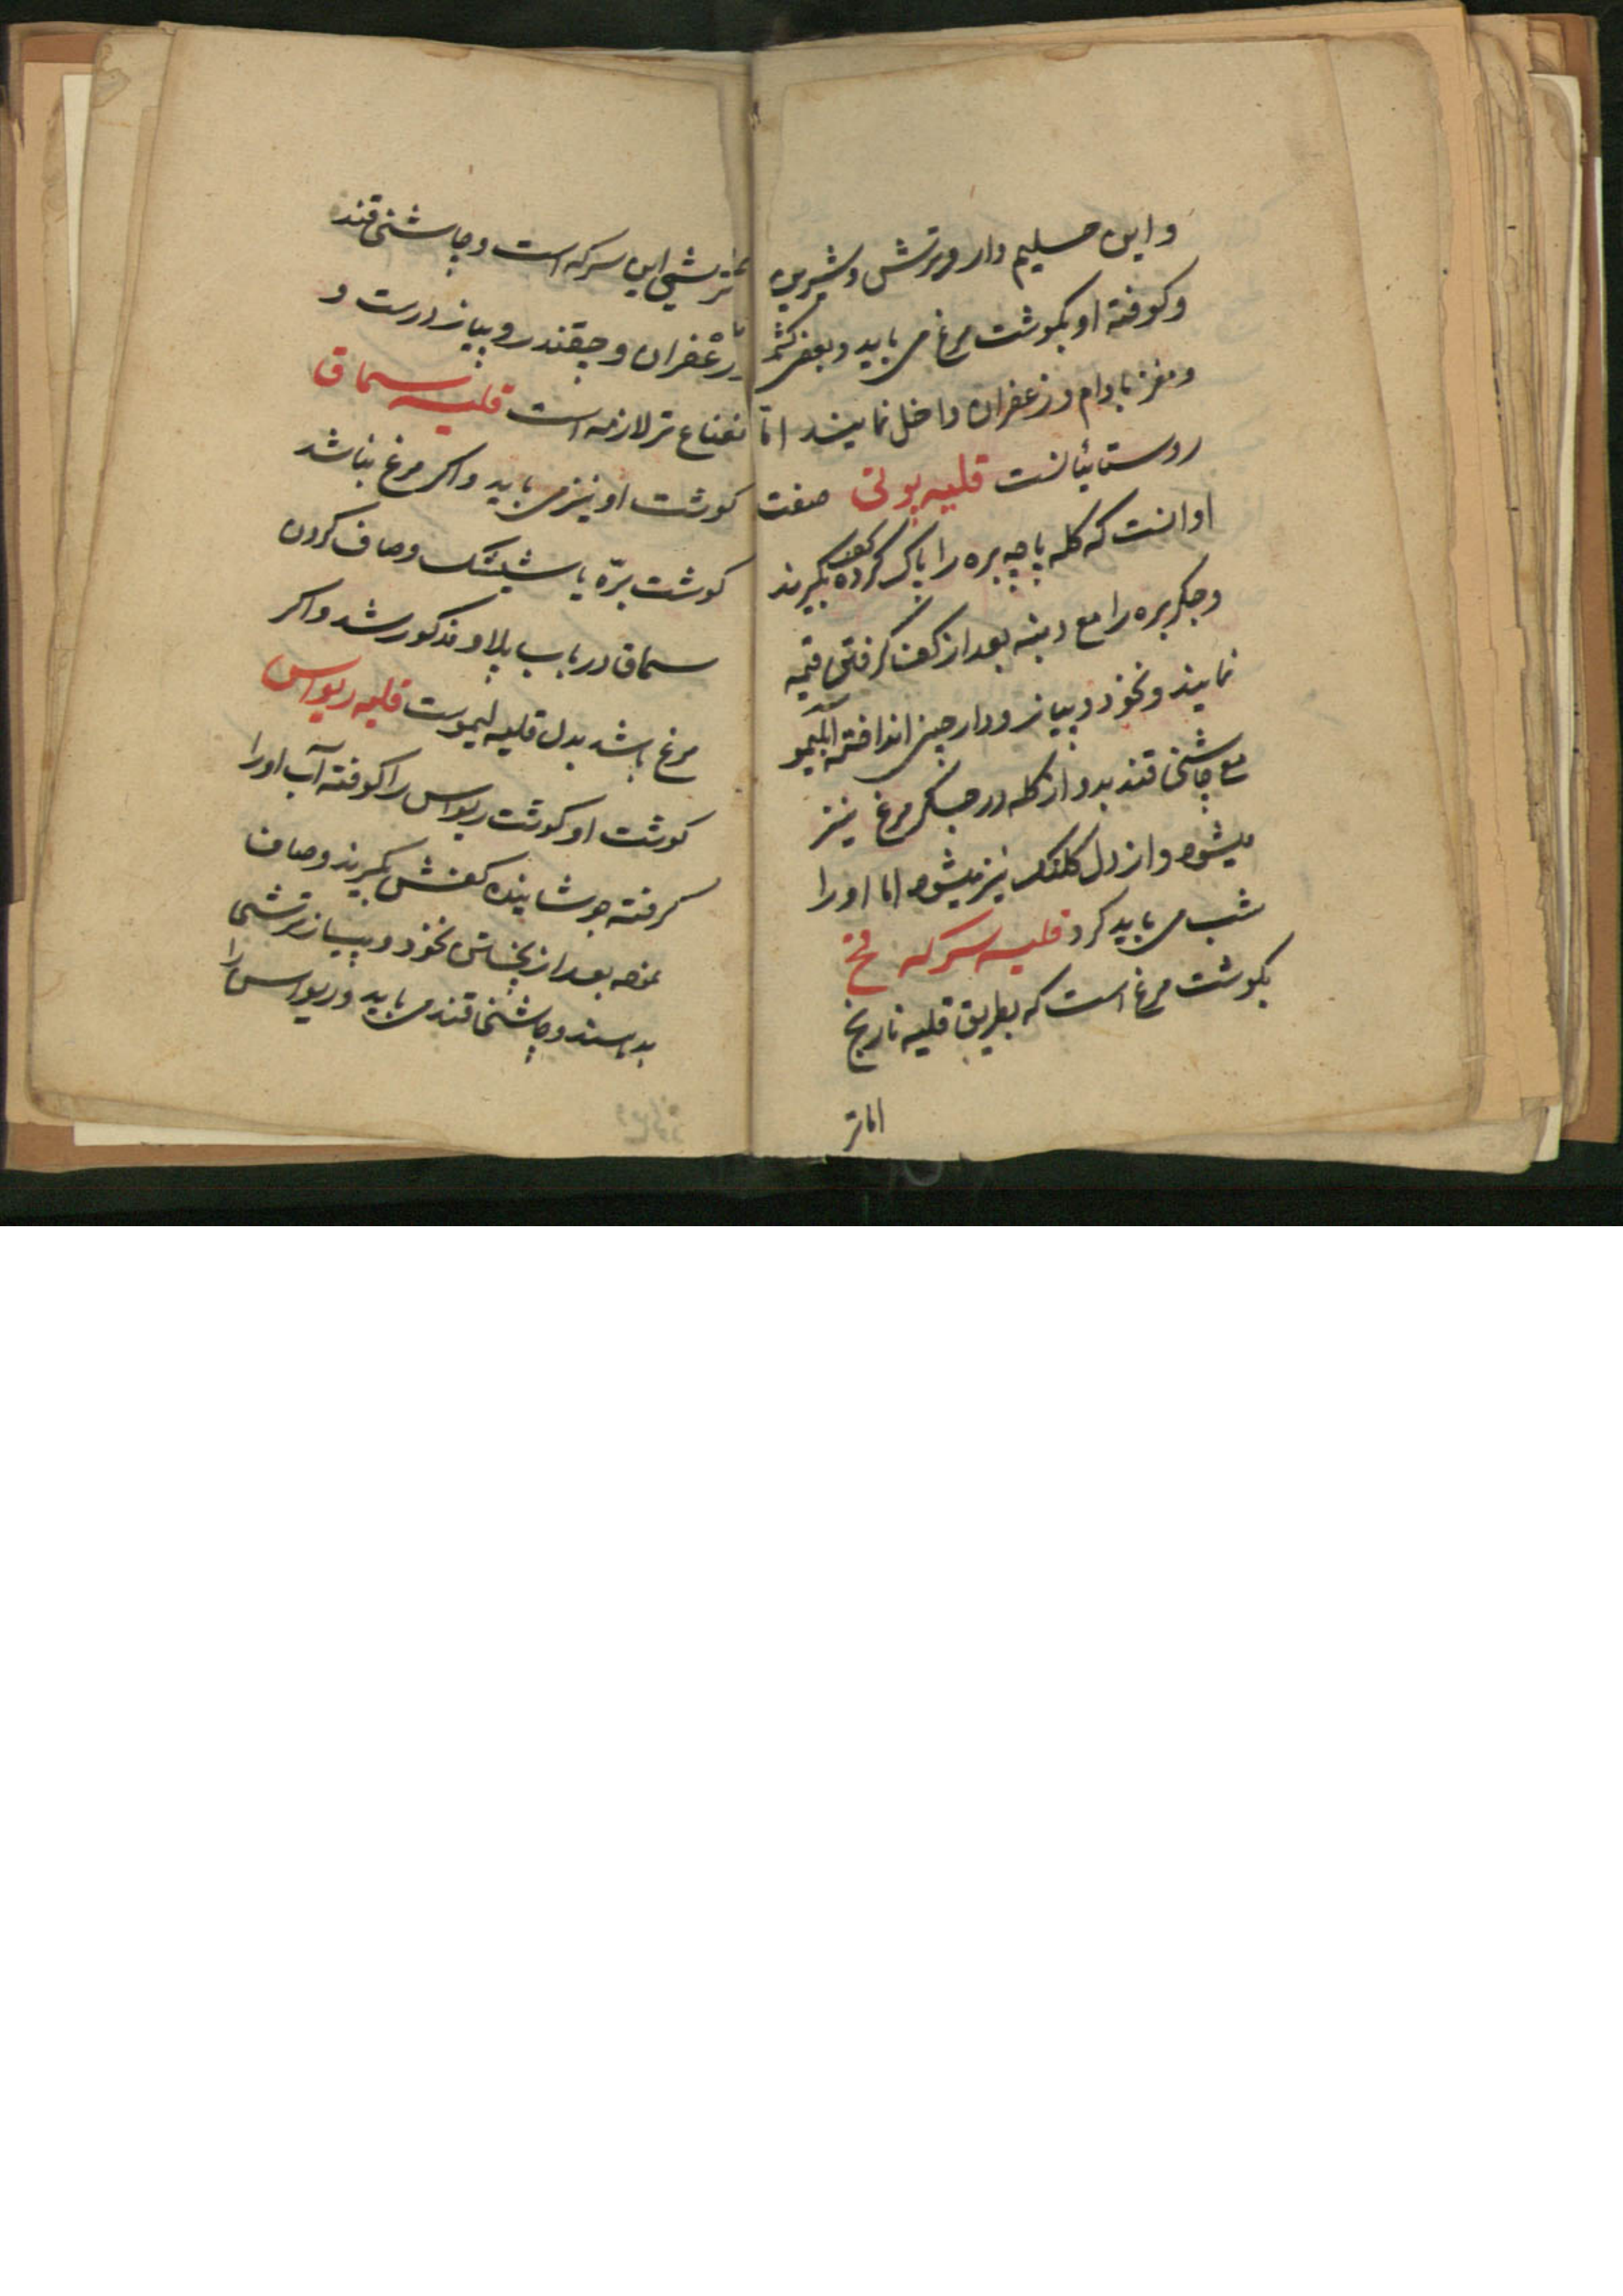 و این حلیم دار و ترش و شیرین
و کوفته او بکوشت مرغ می باید و بعضی کشمش
و مغز بادام و زعفران داخل نمایند اما
روستائیانست قلیه پوتی صفت
او انست که کله پاچه بره را پاک کرده کف بکیرند
و جکر بره را مع دنبه بعد از کف کرفتن قیمه
نمایند و نخود و پیاز و دارچین انداخته
مع چاشنی قند بدو از کله و جکر مرغ نیز
میشود و از دل کلنک نیز میشود اما او را
شب می باید کرد قلیه سرکه
بکوشت مرغ است که بطریق قلیه نارنج
اما تر
ترشی این سرکه است و چاشنی قند
زعفران و چقندر و پیاز درست و
نعناع تر لازمه است قلیه سماق
کوشت او نیز می باید و اکر مرغ نباشد
کوشت برّه یا شیشک و صاف کردن
سماق در باب پلاو مذکور شد و اکر
مرغ باشد بدل قلیه لیموست قلیه ریواس
کوشت او کوشت ریواس را کوفته آب او را
کرفته جوشاینده کفش بکیرند و صاف
نموده بعد از نخود و پیاز ترشی
بدهند و چاشنی قند می باید و ریواس را